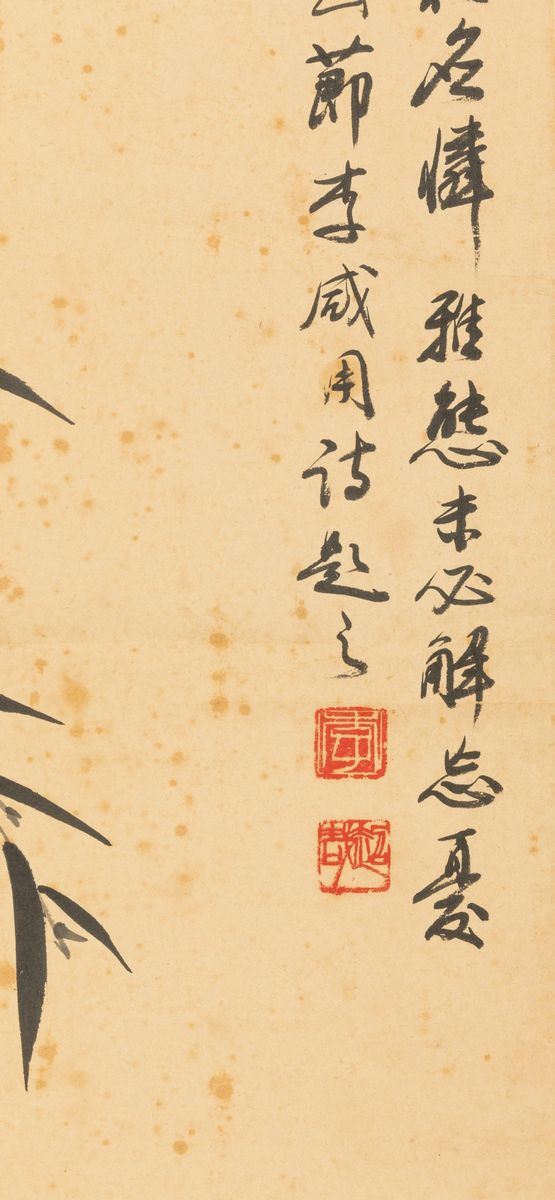 憐雅態未必解忘憂
節李咸用詩題之